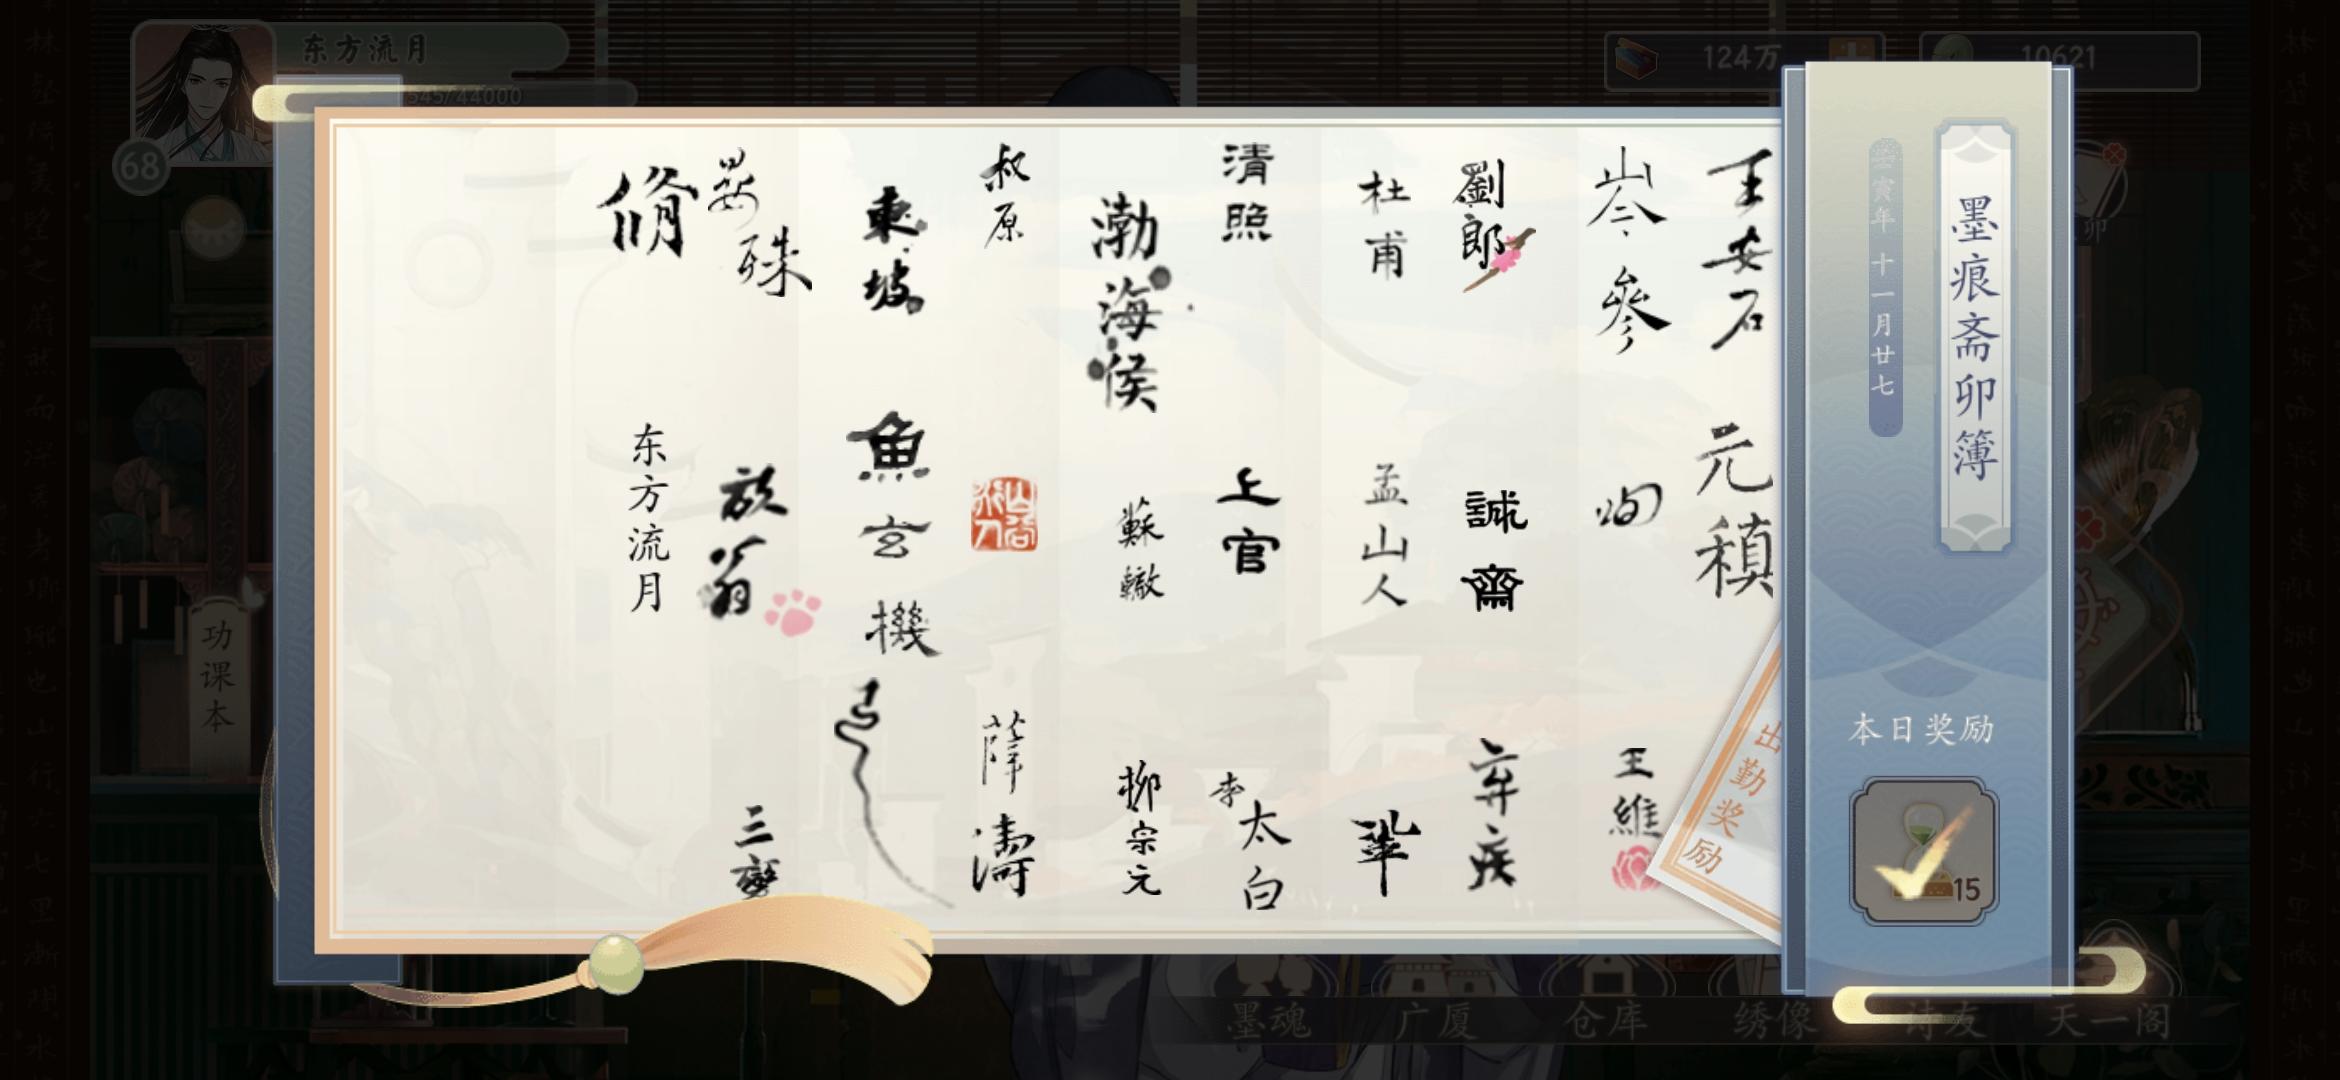 东方流月
68
545/44000
124万
10621
墨痕斋卯簿
壬寅年 十一月廿七
本日奖励
15
出勤奖励
王安石
元稹
岑參
王維
劉郎
誠齋
弃疾
杜甫
孟山人
鞏
清照
上官
李太白
渤海侯
蘇轍
柳宗元
叔原
薛濤
東坡
魚玄機
晏殊
放翁
三變
脩
东方流月
功课本
墨魂
广厦
仓库
绣像
诗友
天一阁